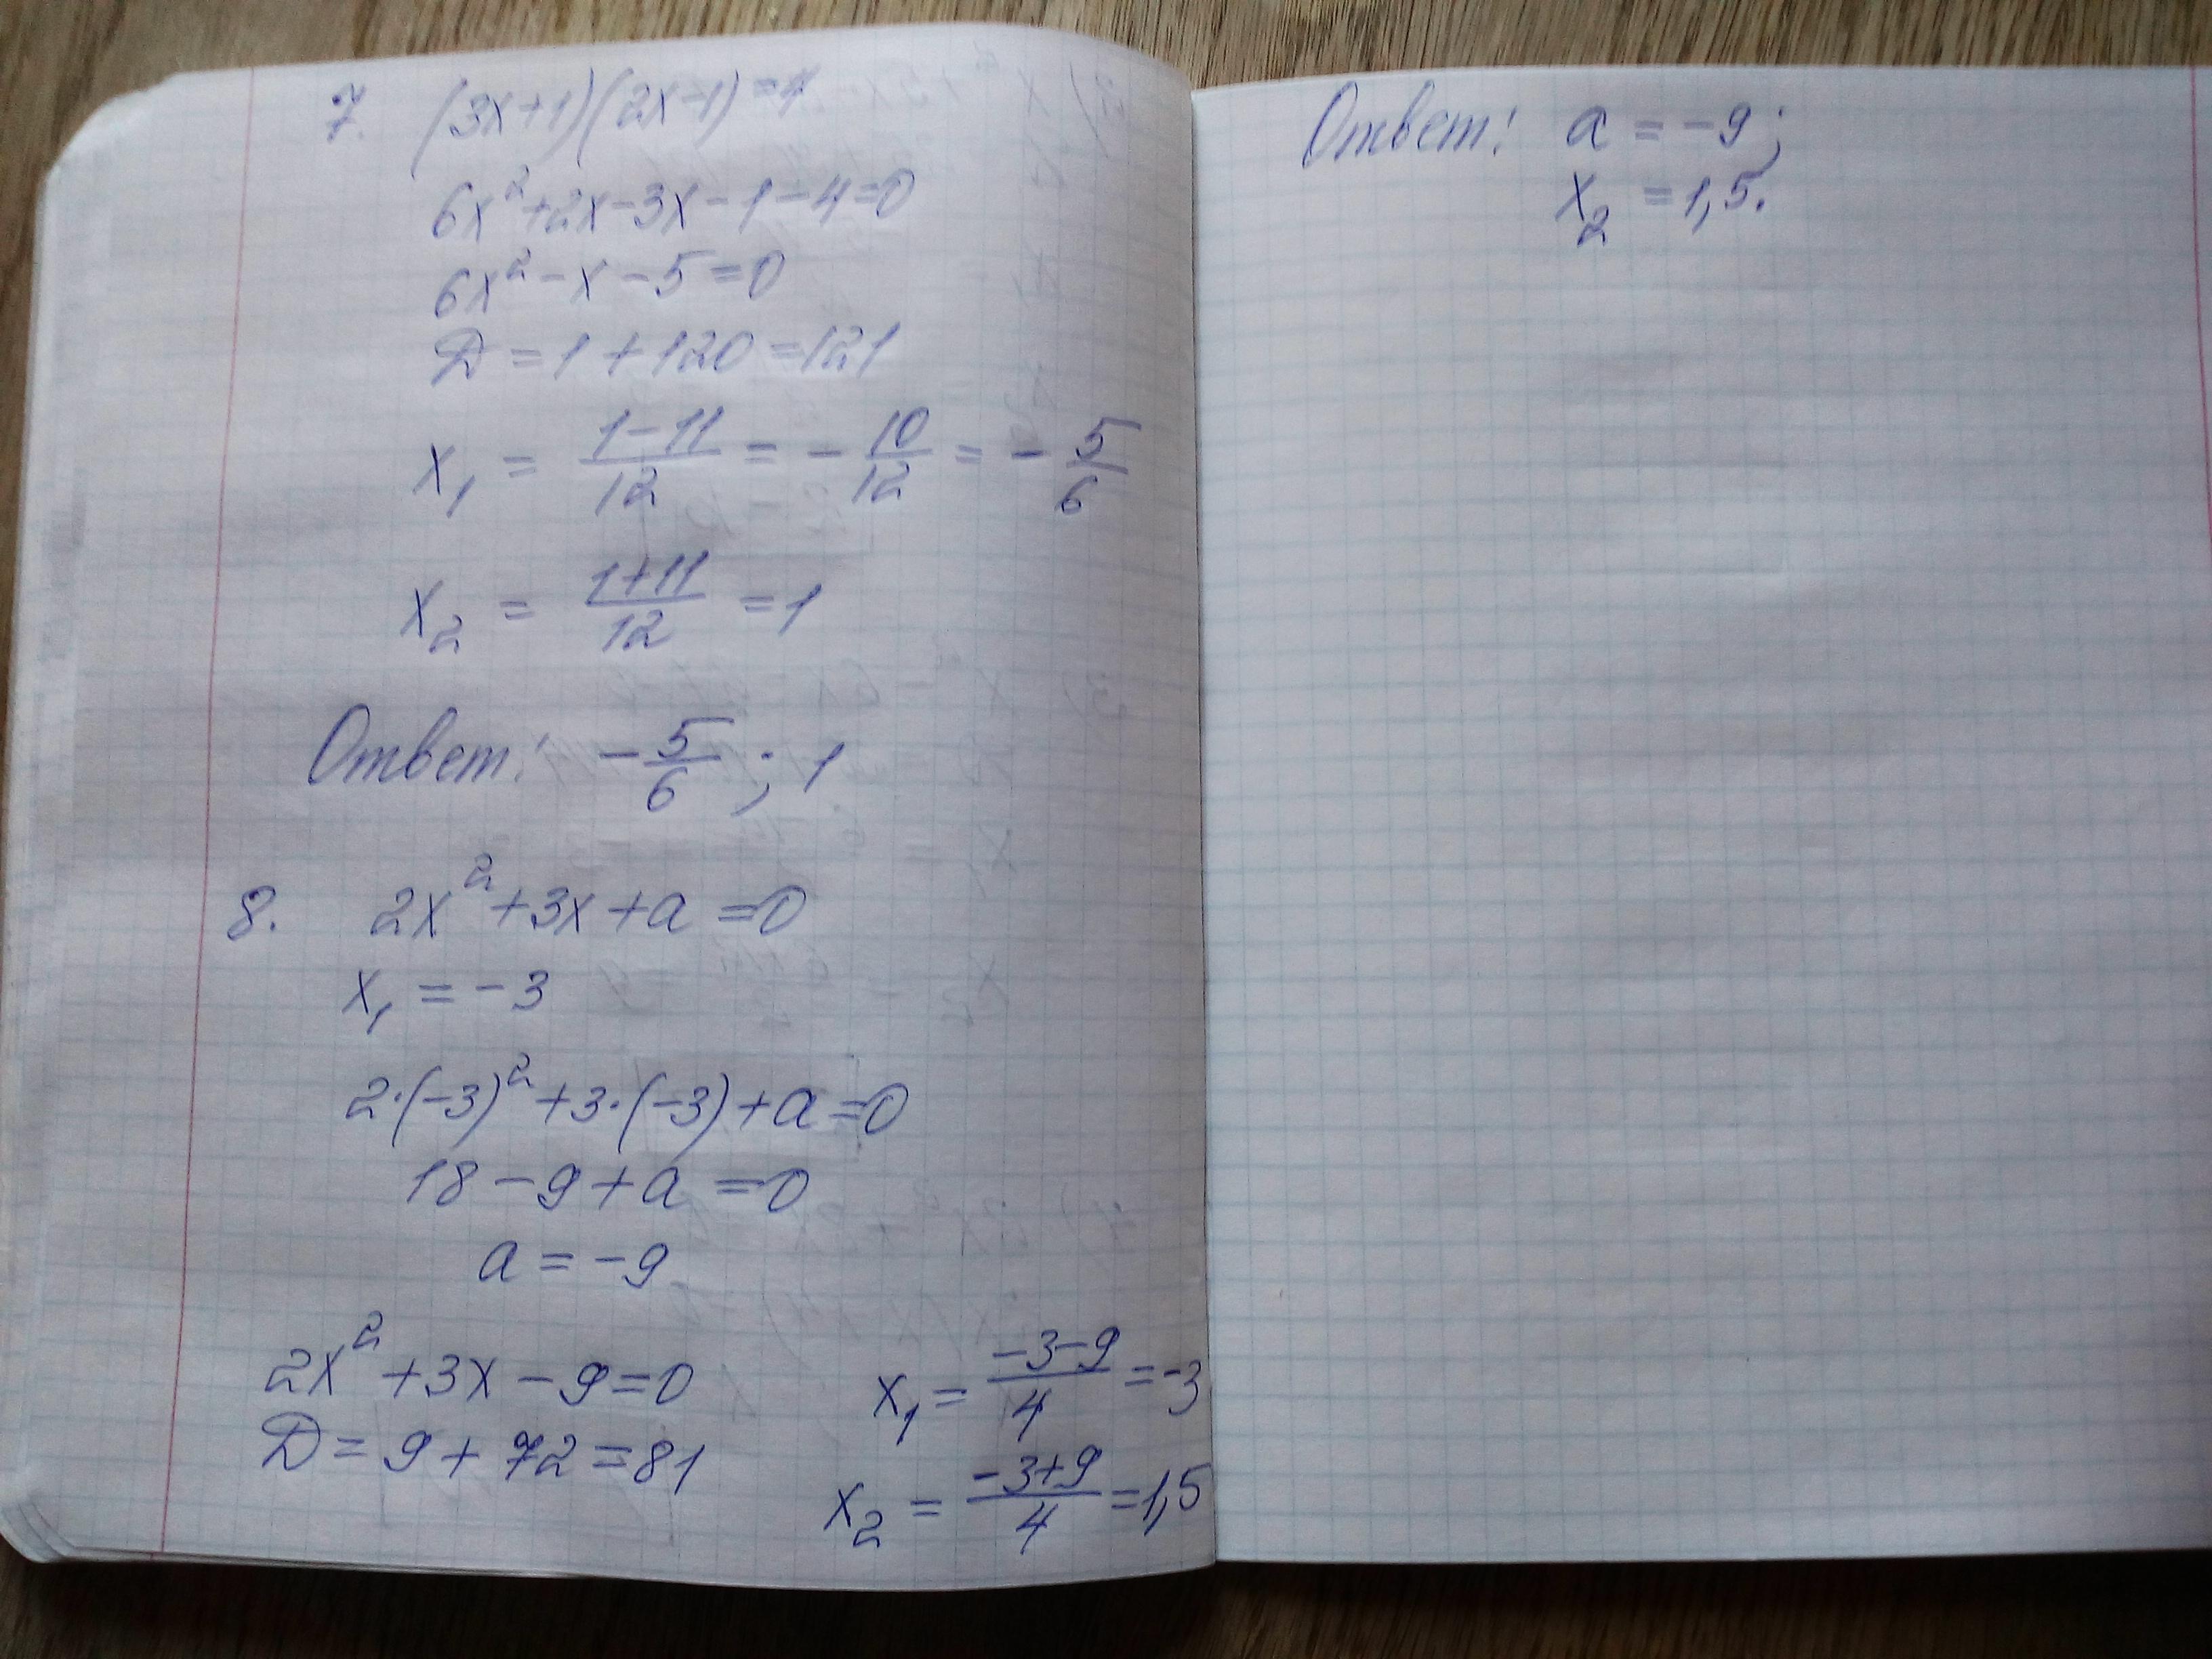 7. (3x+1)(2x-1)=4
6x²+2x-3x-1-4=0
6x²-x-5=0
D=1+120=121
x₁ = (1-11)/12 = -10/12 = -5/6
x₂ = (1+11)/12 = 1
Ответ: -5/6; 1
8. 2x²+3x+a=0
x₁=-3
2·(-3)²+3·(-3)+a=0
18-9+a=0
a=-9
2x²+3x-9=0
D=9+72=81
x₁=(-3-9)/4=-3
x₂=(-3+9)/4=1,5
Ответ: a=-9;
x₂=1,5.